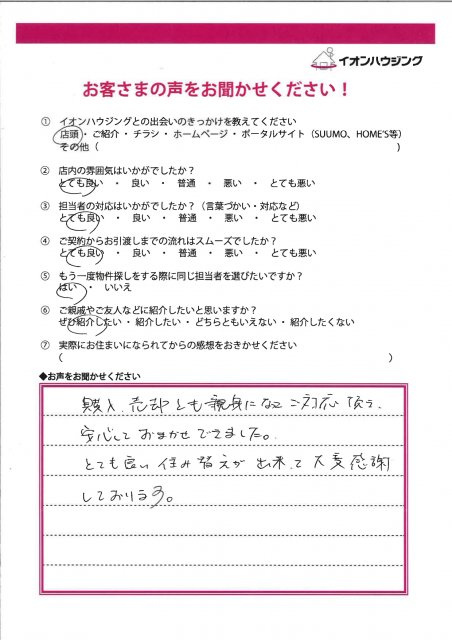 イオンハウジング
お客さまの声をお聞かせください！
① イオンハウジングとの出会いのきっかけを教えてください
店頭 ・ ご紹介 ・ チラシ ・ ホームページ ・ ポータルサイト（SUUMO、HOME'S等）
その他（ ）
② 店内の雰囲気はいかがでしたか？
とても良い ・ 良い ・ 普通 ・ 悪い ・ とても悪い
③ 担当者の対応はいかがでしたか？（言葉づかい・対応など）
とても良い ・ 良い ・ 普通 ・ 悪い ・ とても悪い
④ ご契約からお引渡しまでの流れはスムーズでしたか？
とても良い ・ 良い ・ 普通 ・ 悪い ・ とても悪い
⑤ もう一度物件探しをする際に同じ担当者を選びたいですか？
はい ・ いいえ
⑥ ご親戚やご友人などに紹介したいと思いますか？
ぜひ紹介したい ・ 紹介したい ・ どちらともいえない ・ 紹介したくない
⑦ 実際にお住まいになられてからの感想をおきかせください
（ ）
◆お声をお聞かせください
購入、売却とも親身になって ご対応 頂き、
安心して おまかせ できました。
とても良い 住み替えが 出来て 大変感謝
しております。